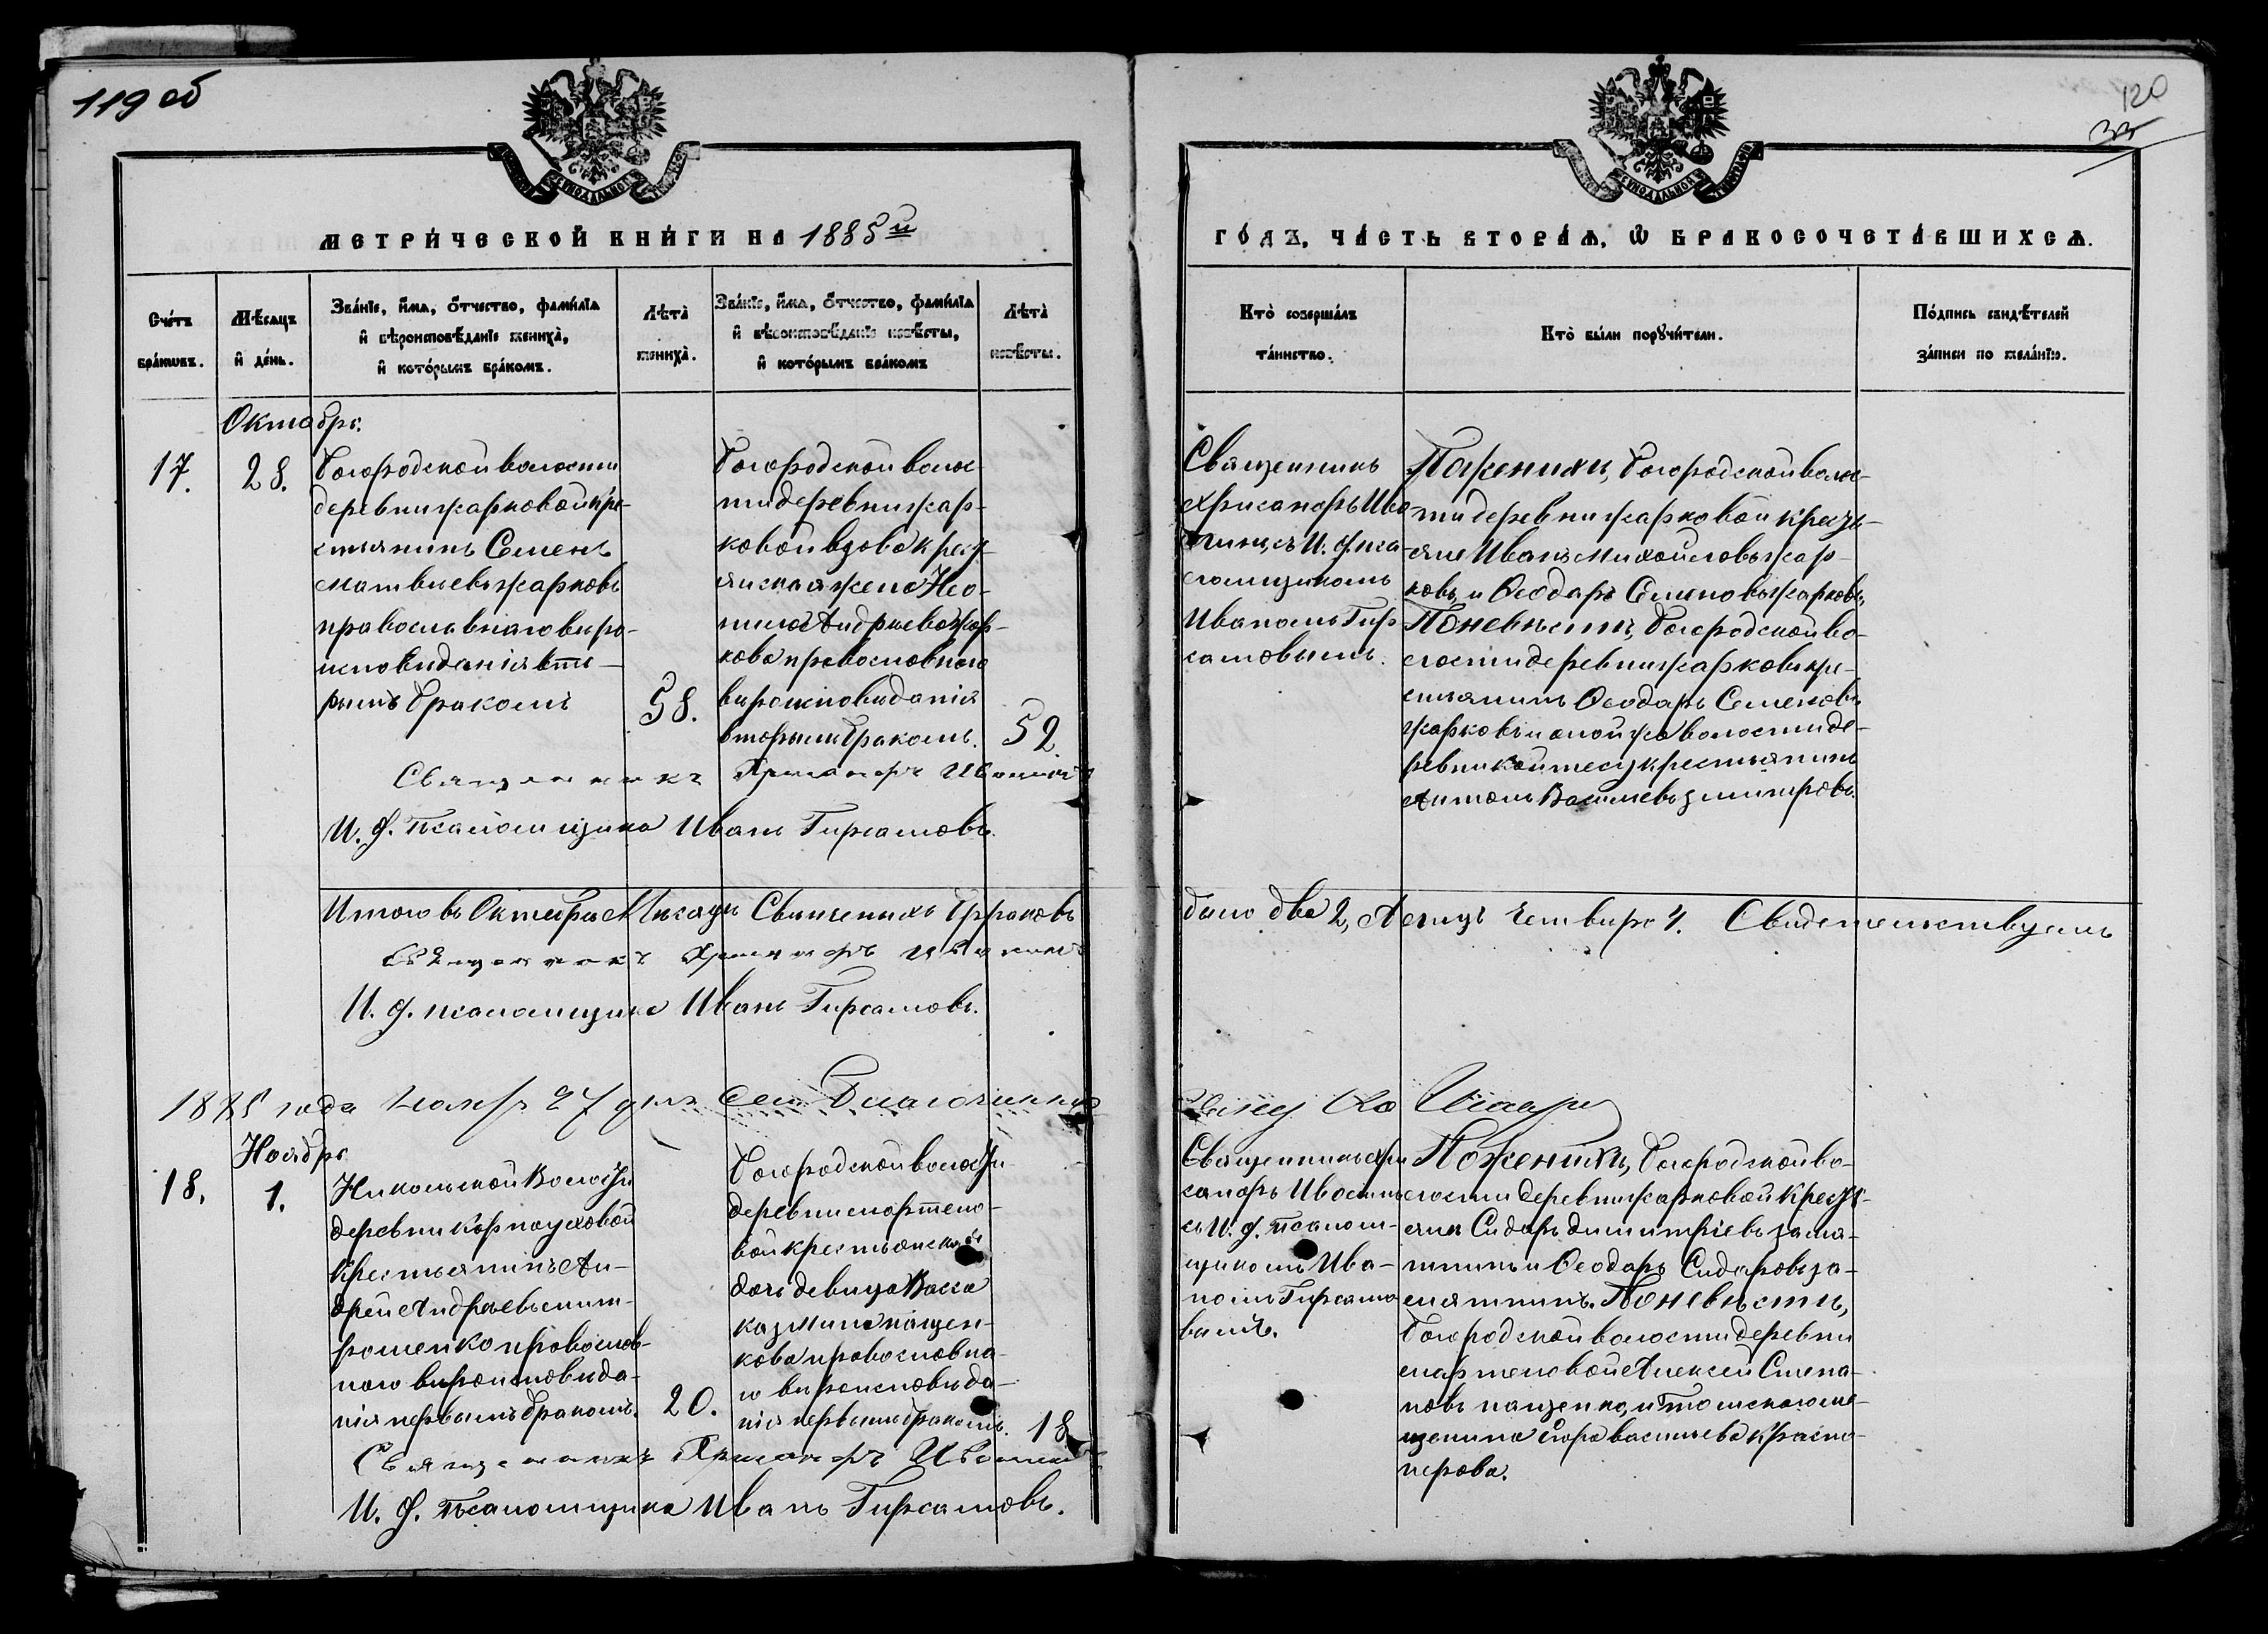 119 об
120
33
МЕТРИЧЕСКОЙ КНИГИ НА 1885 й
ГОДЪ, ЧАСТЬ ВТОРАЯ, Ѡ БРАКОСОЧЕТАВШИХСЯ.
Счетъ браковъ.
Мѣсяцъ и день.
Званіе, имя, отчество, фамилія
и вѣроисповѣданіе жениха,
и которымъ бракомъ.
Лѣта жениха.
Званіе, имя, отчество, фамилія
и вѣроисповѣданіе невѣсты,
и которымъ бракомъ
Лѣта невѣсты.
Кто совершалъ
таинство.
Кто были поручители.
Подпись свидѣтелей
записи по желанію.
Октябрь.
17.
28.
Богородской волости
деревни Жарковой кре-
стьянинъ Семенъ
Матвиевъ Жарковъ
православнаго виро-
исповиданія вто-
рымъ бракомъ
58.
Богородской волос-
ти деревни Жар-
ковой вдова крест-
янская жена Нео-
нила Андриева Жар-
кова православного
вироисповиданія
вторымъ бракомъ.
52.
Священникъ
Хрисанфъ Ива
съ И. д. пса-
ломщикомъ
Иваномъ Гир-
самовымъ.
По женихи, Богородской волос-
ти деревни Жарковой крестья-
яне Иванъ Михайловъ Жар-
ковъ, и Ѳеодаръ Семеновъ Жарковъ,
По невѣсти, Богородской во-
лости деревни Жарковы кре-
стьянинъ Ѳеодаръ Семеновъ
Жарковъ и оной же волости де-
ревни крестьянинъ
Антонъ Василевъ Дмитровъ.
Священникъ Хрисанфъ Ивановъ
И. д. Псаломщика Иванъ Гирсамовъ.
Итого въ Октябре Мисяци Свиченихъ браковъ
было два 2, А лицъ четвиро 4. Свидетелствуемъ
Священникъ Хрисанфъ
И. д. псаломщика Иванъ Гирсамовъ.
1885 года Ноябр 27 дня
Ноябрь
18.
1.
Никольской Волости
деревни Карнауховой
Крестьянинъ Ан-
дрей Андриевъ
православ-
ного вироисповида-
нія первымъ бракомъ.
20.
Богородской волости
деревни Мартено-
вой крестьянская
дочь девица Васса
Казмина Пащен-
кова православна-
го вироисповида-
нія первымъ бракомъ.
18
Священникъ Хри
санфъ
съ И. д. псалом-
щикомъ Ива-
номъ Гирсамо
вымъ.
По жениxи, Богородской во-
лости деревни Жарковой крест-
яне Сидаръ Димитріевъ Замя-
тнинъ и Ѳеодаръ Сидаровъ За-
мятнинъ. По невѣсти,
Богородской волости деревни
Мартеновой Алексей Степа-
новъ Пащенко, и Томскаго ме-
щенина Егора Василиева Красно-
перова.
Священникъ Хрисанфъ
И. д. Псаломщика Иванъ Гирсамовъ.